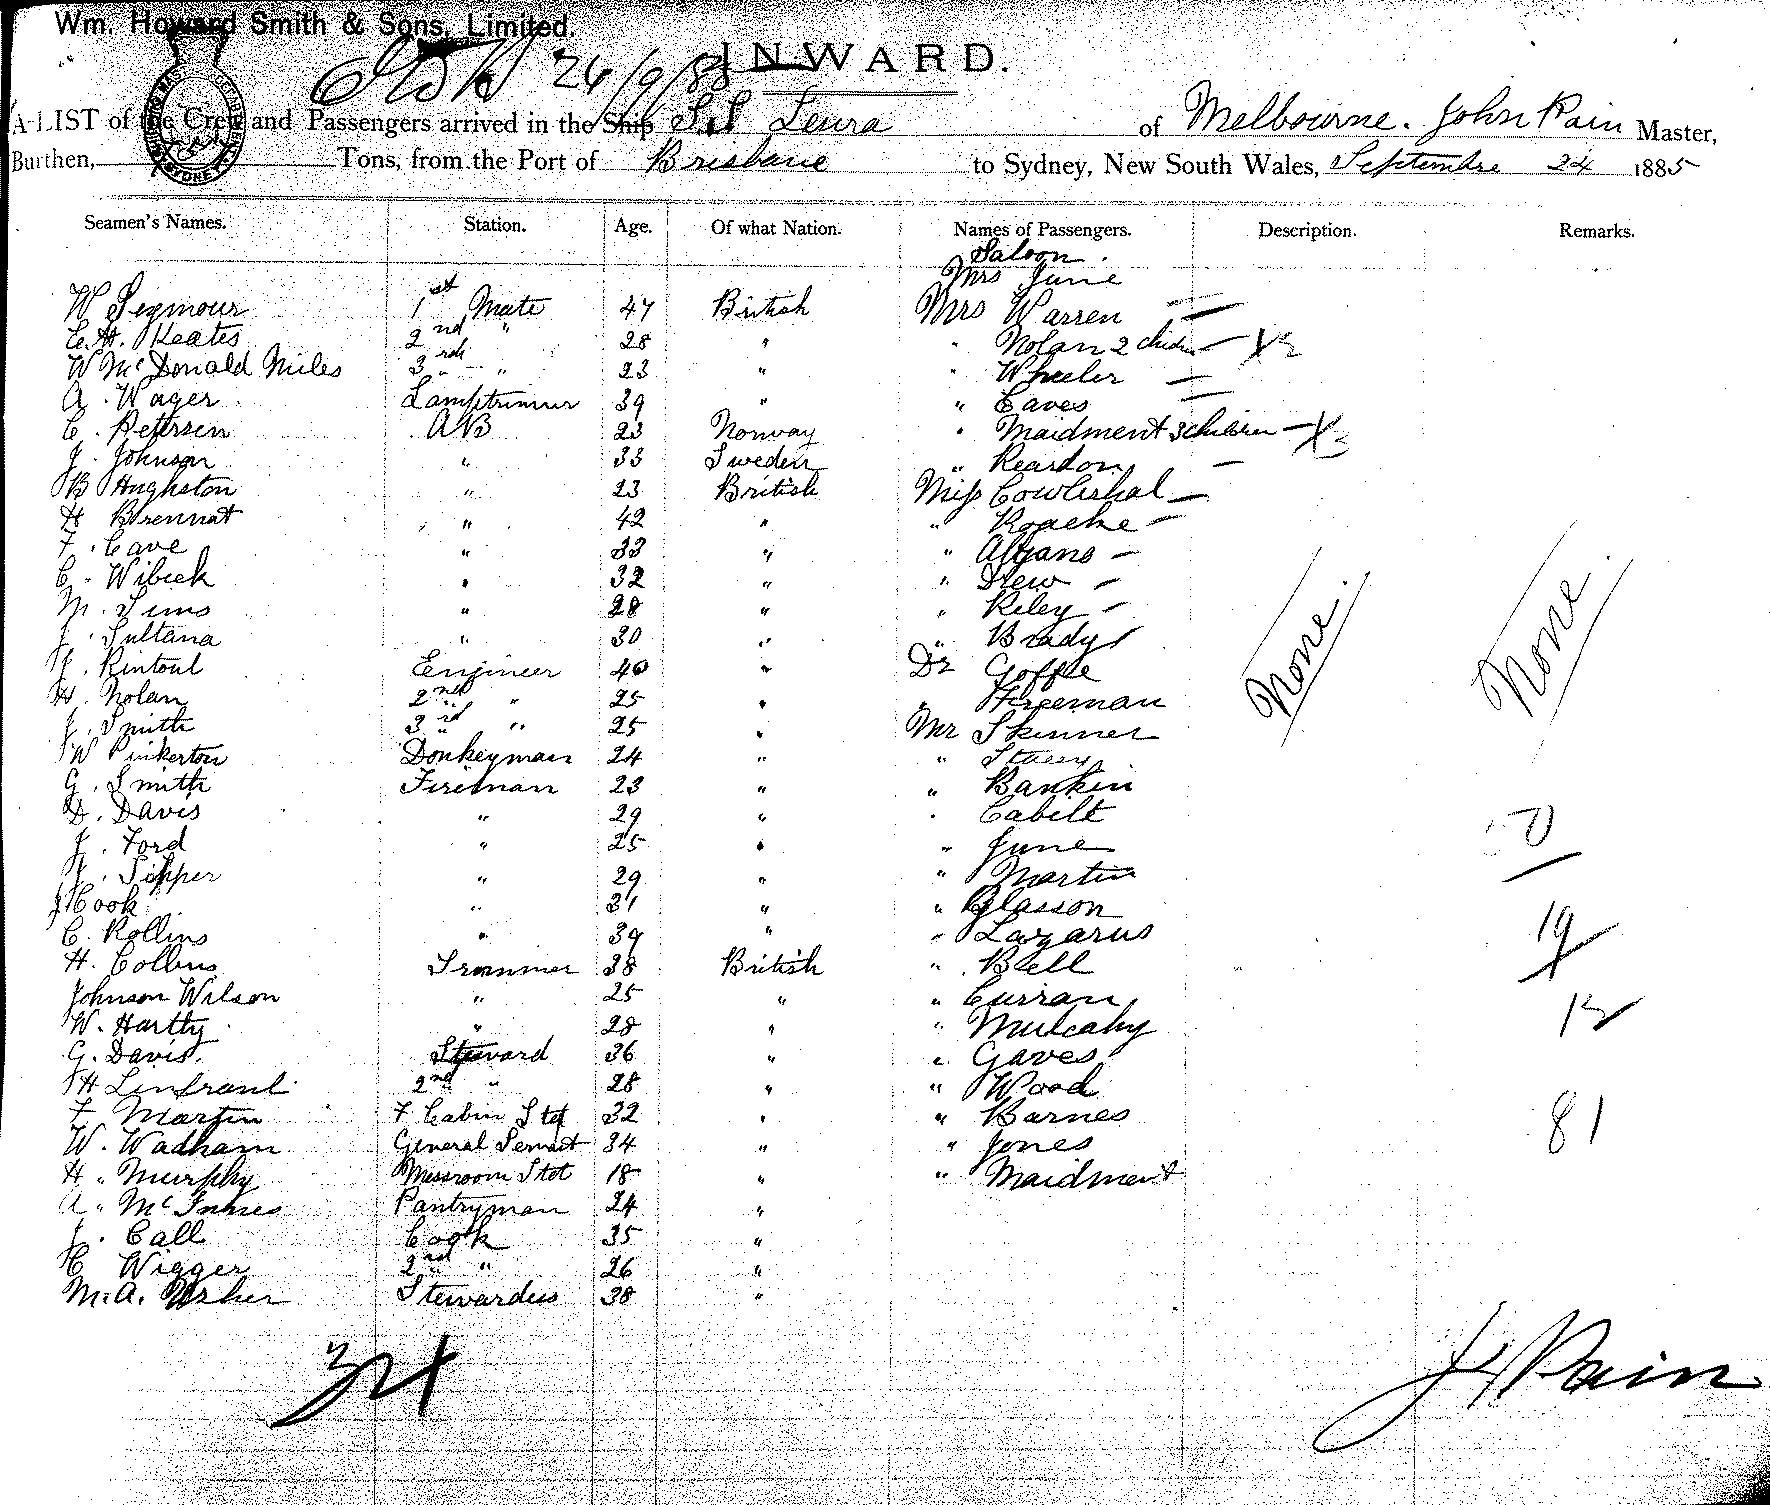 Wm. Howard Smith & Sons, Limited.
INWARD.
26/9/85
A LIST of the Crew and Passengers arrived in the Ship S.S Leura of Melbourne. John Pain Master,
Burthen, Tons, from the Port of Brisbane to Sydney, New South Wales, September 24 1885
Seamen's Names. Station. Age. Of what Nation. Names of Passengers. Description. Remarks.
Saloon.
Mrs June
W Seymour 1st Mate 47 British Mrs Warren —
E.H. Keates 2nd " 28 " " Nolan 2 childn — X2
W McDonald Miles 3rd " 23 " " Wheeler —
A. Wager Lamptrimmer 39 " " Eaves —
C. Petersen AB 23 Norway " Maidment 3 children — X3
J. Johnson " 33 Sweden " Reardon —
B Hughston " 23 British Miss Cowlishal —
H Brennat " 42 " " Roache —
F. Cave " 33 " " —
C. Wibeck " 32 " " Drew —
M. Sims " 28 " " Riley —
J. Sultana " 30 " " Brady
J. Rintoul Engineer 40 " Dr Goffle
H. Nolan 2nd " 25 " " Freeman
J. Smith 3rd " 25 " Mr Skinner
W Pinkerton Donkeyman 24 " " Stacey
G. Smith Fireman 23 " " Rankin
D. Davis " 29 " " Cabilt
J. Ford " 25 " " June
J. Sipper " 29 " " Martin
J Cook " 31 " " Glasson
C. Rollins " 39 " " Lazarus
H. Collins Trimmer 38 British " Bell
Johnson Wilson " 25 " " Curran
W. Hartly " 28 " " Mulcahy
G. Davis. Steward 36 " " Gaves
H Lenfrant 2nd " 28 " " Wood
F. Martin F Cabin Std 32 " " Barnes
W. Wadham General Servant 34 " " Jones
H. Murphy Messroom Std 18 " " Maidment
A. McInnes Pantryman 24 "
J. Call Cook 35 "
C Wigger 2nd " 26 "
M.A. Usher Stewardess 38 "
None.
None.
19
13
81
34
J Pain